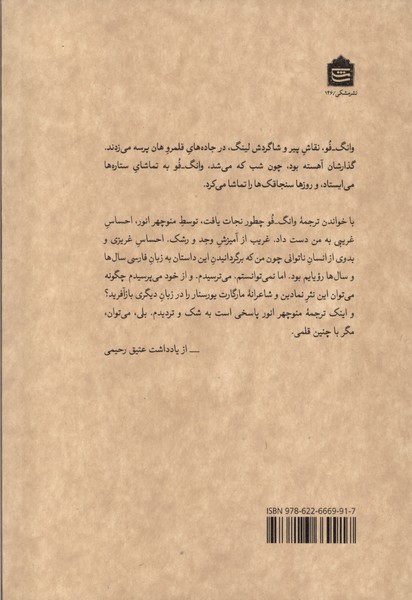 نشرمشکی/۱۴۶
وانگ‌ـفُو، نقاشِ پیر و شاگردش لینگ، در جاده‌های قلمروِ هان پرسه می‌زدند.
گذارشان آهسته بود، چون شب که می‌شد، وانگ‌ـفُو به تماشای ستاره‌ها
می‌ایستاد، و روزها سنجاقک‌ها را تماشا می‌کرد.
با خواندن ترجمهٔ وانگ‌ـفُو چطور نجات یافت، توسطِ منوچهر انور، احساسِ
غریبی به من دست داد. غریب از آمیزشِ وجد و رشک. احساسِ غریزی و
بدوی از انسانِ ناتوانی چون من که برگرداندنِ این داستان به زبانِ فارسی سال‌ها
و سال‌ها رؤیایم بود. اما نمی‌توانستم. می‌ترسیدم. و از خود می‌پرسیدم چگونه
می‌توان این نثرِ نمادین و شاعرانهٔ مارگارت یورسنار را در زبانِ دیگری بازآفرید؟
و اینک ترجمهٔ منوچهر انور پاسخی است به شک و تردیدم. بلی، می‌توان،
مگر با چنین قلمی.
— از یادداشت عتیق رحیمی
ISBN 978-622-6669-91-7